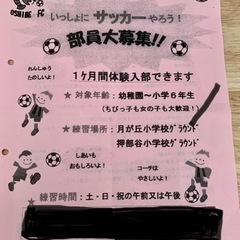 OSHIBE FC
いっしょに サッカー やろう!
部員大募集!!
れんしゅう
たのしいよ!
1ケ月間体験入部できます
★ 対象年齢：幼稚園～小学6年生
（ちびっ子も女の子も大歓迎！）
★ 練習場所：月が丘小学校グラウンド
押部谷小学校グラウンド
しあいも
おもしろいよ!
コーチは
やさしいよ!
★ 練習時間：土・日・祝の午前又は午後